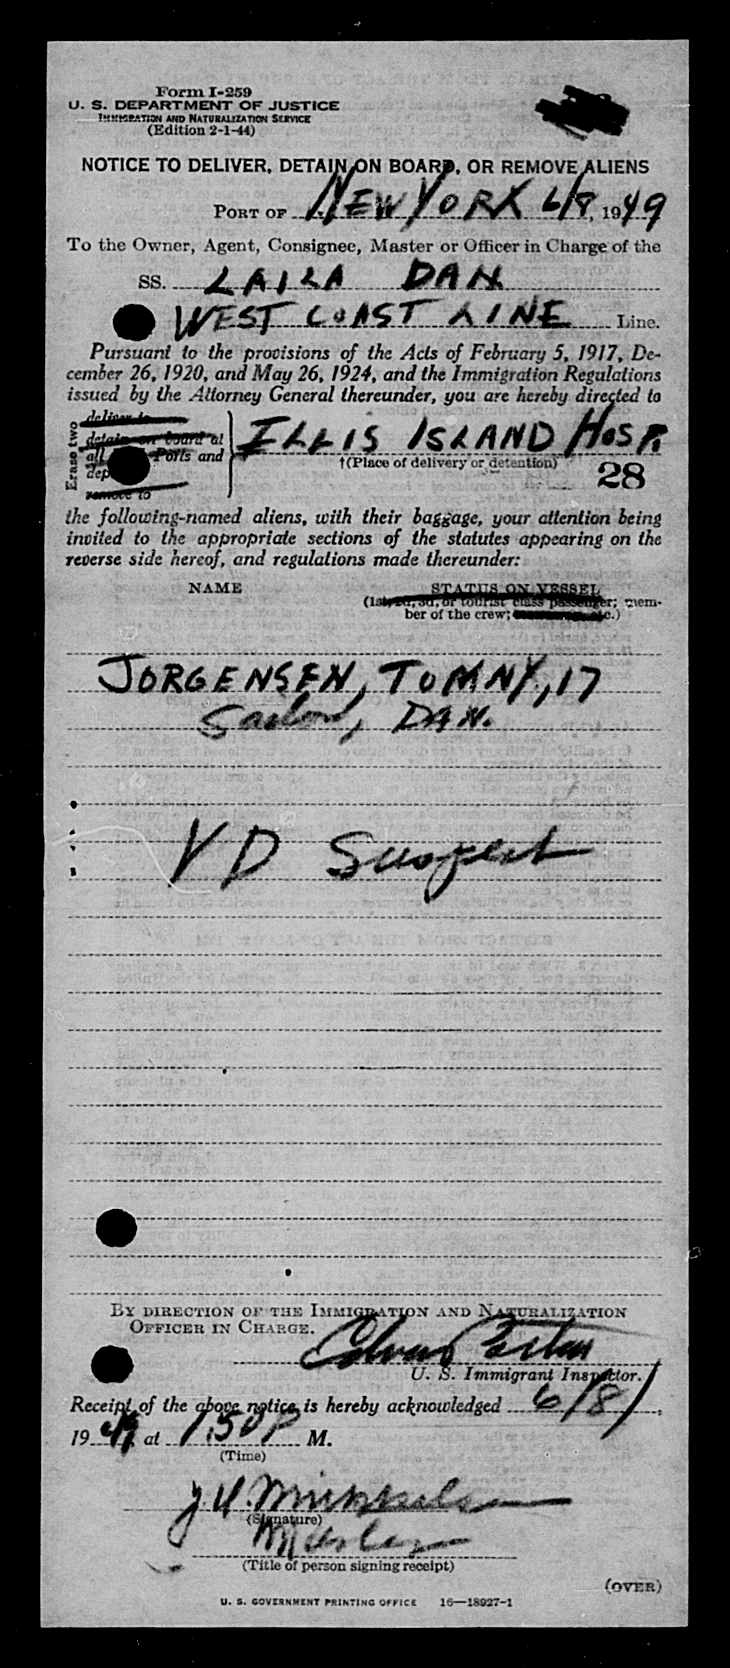 Form I-259
U. S. DEPARTMENT OF JUSTICE
IMMIGRATION AND NATURALIZATION SERVICE
(Edition 2-1-44)
NOTICE TO DELIVER, DETAIN ON BOARD, OR REMOVE ALIENS
PORT OF NEW YORK 6/8, 1949
To the Owner, Agent, Consignee, Master or Officer in Charge of the
SS. LAILA DAN
WEST COAST LINE Line.
Pursuant to the provisions of the Acts of February 5, 1917, De-
cember 26, 1920, and May 26, 1924, and the Immigration Regulations
issued by the Attorney General thereunder, you are hereby directed to
Erase two
deliver to
detain on board at
all Ports and
dep
remove to
ELLIS ISLAND HOSP.
†(Place of delivery or detention)
28
the following-named aliens, with their baggage, your attention being
invited to the appropriate sections of the statutes appearing on the
reverse side hereof, and regulations made thereunder:
NAME STATUS ON VESSEL
(1st, 2d, 3d, or tourist class passenger; mem-
ber of the crew; etc.)
JORGENSEN, TOMMY, 17
Sailor, DAN.
VD Suspect
BY DIRECTION OF THE IMMIGRATION AND NATURALIZATION
OFFICER IN CHARGE.
U. S. Immigrant Inspector.
Receipt of the above notice is hereby acknowledged 6/8/,
1949 at 1:50 P M.
(Time)
(Signature)
Master
(Title of person signing receipt)
(OVER)
U. S. GOVERNMENT PRINTING OFFICE 16—18927-1